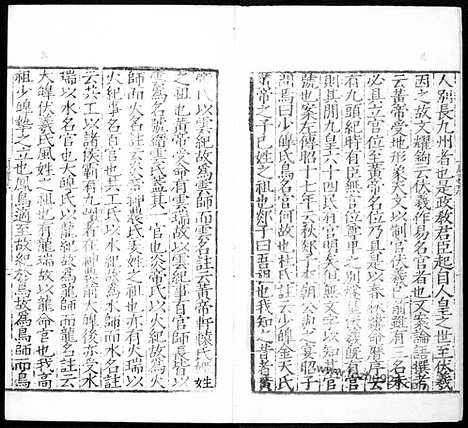 人別長九州者也是政教君臣起自人皇之世至伏羲
因之故文耀鉤云伏羲作易名官者也又案論語撰考
云黃帝受地形象天文以制官伏羲已前雖有三名未
必具立官位至黃帝名位乃具然
有九頭紀時有臣無官位尊卑之別
則其間九皇六十四民有官明矣但無文字以知其官
號也案左傳昭十七年云秋郯子來朝公與之宴昭子
問焉曰少皞氏鳥名官何故也杜氏注云少皞金天氏
黃帝之子己姓之祖也郯子曰吾祖也我知之昔者黃
帝氏以雲紀故為雲師而雲名註云黃帝軒轅氏姬姓
之祖也黃帝受命有雲瑞故以雲紀事百官師長皆以
雲為名號縉雲氏蓋其一官也炎帝氏以火紀故為
火師而火名註云炎帝神農氏姜姓之祖也亦有火瑞以
火紀事名百官也共工氏以水紀故為水師而水名註
云共工以諸侯霸有九州者在神農前大皞後亦受水
瑞以水名官也大皞氏以龍紀故為龍師而龍名註云
大皞伏羲氏風姓之祖也有龍瑞故以龍命官也我高
祖少皞摯之立也鳳鳥適至故紀於鳥為鳥師而鳥